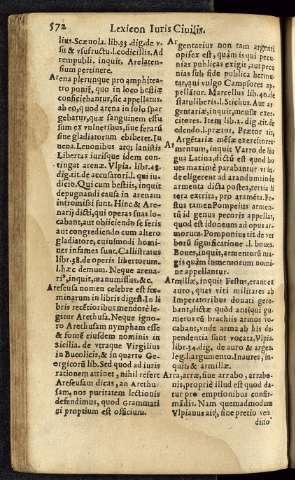 572 Lexicon Iuris Civilis.
lius. Scævola. lib.33. dig. de v-
su & vsufructu.l.codicillis. Ad
rempubli. inquit, Arelaten-
sium pertinere.
Arena plerunque pro amphitea-
tro ponit, quo in loco bestiæ
conficiebantur, sic appellatus
ab eo, quod arena in solo spar-
gebatur, quæ sanguinem effu
sum ex vulneribus, siue ferarū
siue gladiatorum ebiberet. Iu
uenal. Leuonibus atq; lanistis
Libertas iurisque idem con-
tingat arenæ. Vlpia. libr.48.
dig. tit. de accusator.l. qui iu-
dicio. Qui cum bestiis, inquit
depugnandi causa in arenam
intromissi sunt. Hinc & Are-
narij dicti, qui operas suas lo-
cabant, aut obiiciendo se feris
aut congrediendo cum altero
gladiatore, cuiusmodi homi-
ner infames sunt. Callistratus
libr.48. de operis libertorum.
l. hæc demum. Neque arena-
ri', inquit, manumissus, &c.
Arefeusa nomen celebre est fœ-
minarum in libris digest. In li
bris recētioribus mendose le-
gitor Arethusa. Neque igno-
ro Arethusam nympham esse
& fontē eiusdem nominis in
Sicilia. de vtraque Virgilius
in Bucolicis, & in quarto Ge-
orgicorū lib. Sed quod ad iuris
rationem attinet, nihil refert
Arefeusam dicas, an Arethu-
sam, nos puritatem lectionis
defendimus, quod Grammati
gi proptium est officium.
Argentarius non tam argenti
opifex est, quàm is qui pecu-
nias publicas exigit, aut pecu
nias sub fide publica hermi-
tur, qui vulgo Campsores ap-
pellātor. Marcellus lib.40. de
statuliberis.l. Stichus. Aut ar
gentariæ, inquit, mensæ exer-
citores. Item lib.2. dig. tit. de
edendo.l. prætor, Prætor iis,
Argetariæ mēsæ exercitores-
Armentum, inquit Varro de lin
gua Latina, dictū est quod bo
ues maximè parabantur, vt in
de eligerent ad arandum inde
armenta dicta postea, tertia li
tera extrita, pro arāmēta. Fes
tus tamē Pompeius armen-
tū id genus pecoris appellat,
quod est idoneum ad opus ar
morum. Pomponius tit. de ver
borū significatione .l. boues.
Boues, inquit, armentorū ma-
gis quàm iumentorum nomi-
ne appellantur.
Armillæ, inquit Festus, erant ex
auro, quas viri militares ab
Imperatoribus donati gere-
bant, dictæ quòd antiqui hu-
meros cum brachiis armos vo
cabant, vnde arma ab his de-
pendentia sunt vocata. Vlpia.
libr.34. dig. de auro & argen.
leg.l. argumento. Inaures, in-
quit, & armillæ.
Arra, arræ, siue arrabo, arrabo-
nis, proprie illud est quod da-
tur pro emptionibus confir-
mādis. Nam quemadmodum
Vlpianus ait, siue pretio ven
dito